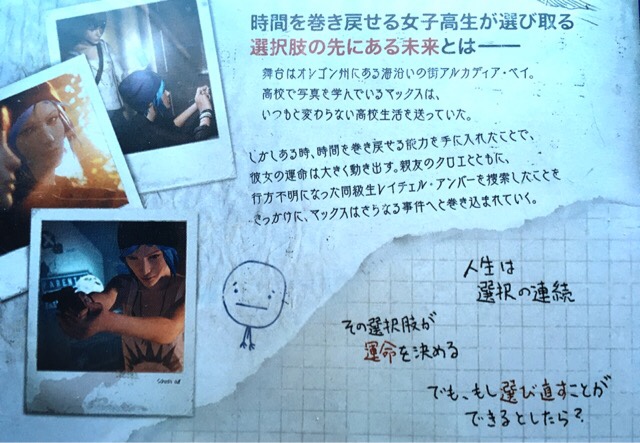 時間を巻き戻せる女子高生が選び取る
選択肢の先にある未来とは——
舞台はオレゴン州にある海沿いの街アルカディア・ベイ。
高校で写真を学んでいるマックスは、
いつもと変わらない高校生活を送っていた。
しかしある時、時間を巻き戻せる能力を手に入れたことで、
彼女の運命は大きく動き出す。親友のクロエとともに、
行方不明になった同級生レイチェル・アンバーを捜索したことを
きっかけに、マックスはさらなる事件へと巻き込まれていく。
人生は
選択の連続
その選択肢が
運命を決める
でも、もし選び直すことが
できるとしたら?